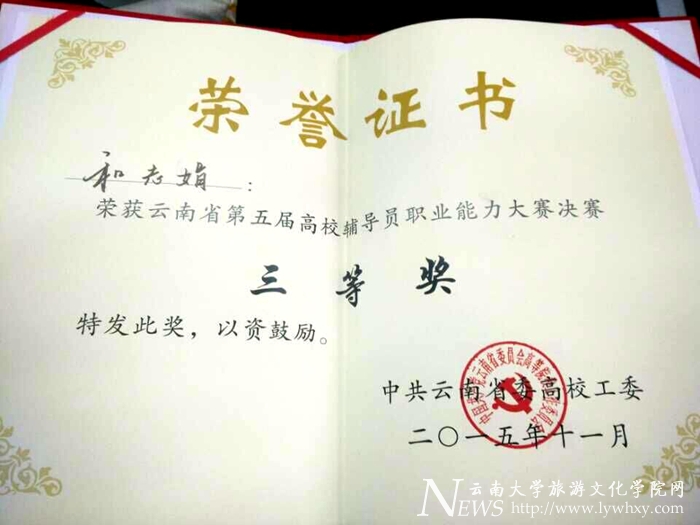 荣誉证书
和志娟：
荣获云南省第五届高校辅导员职业能力大赛决赛
三等奖
特发此奖，以资鼓励。
中共云南省委高校工委
二〇一五年十一月
云南大学旅游文化学院网
NEWS http://www.lywhxy.com